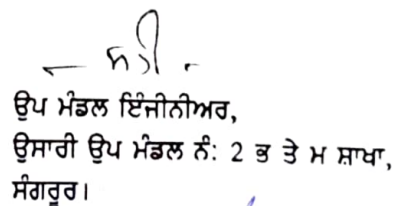 ਉਪ ਮੰਡਲ ਇੰਜੀਨੀਅਰ,
ਉਸਾਰੀ ਉਪ ਮੰਡਲ ਨੰ: 2 ਭ ਤੇ ਮ ਸ਼ਾਖਾ,
ਸੰਗਰੂਰ।